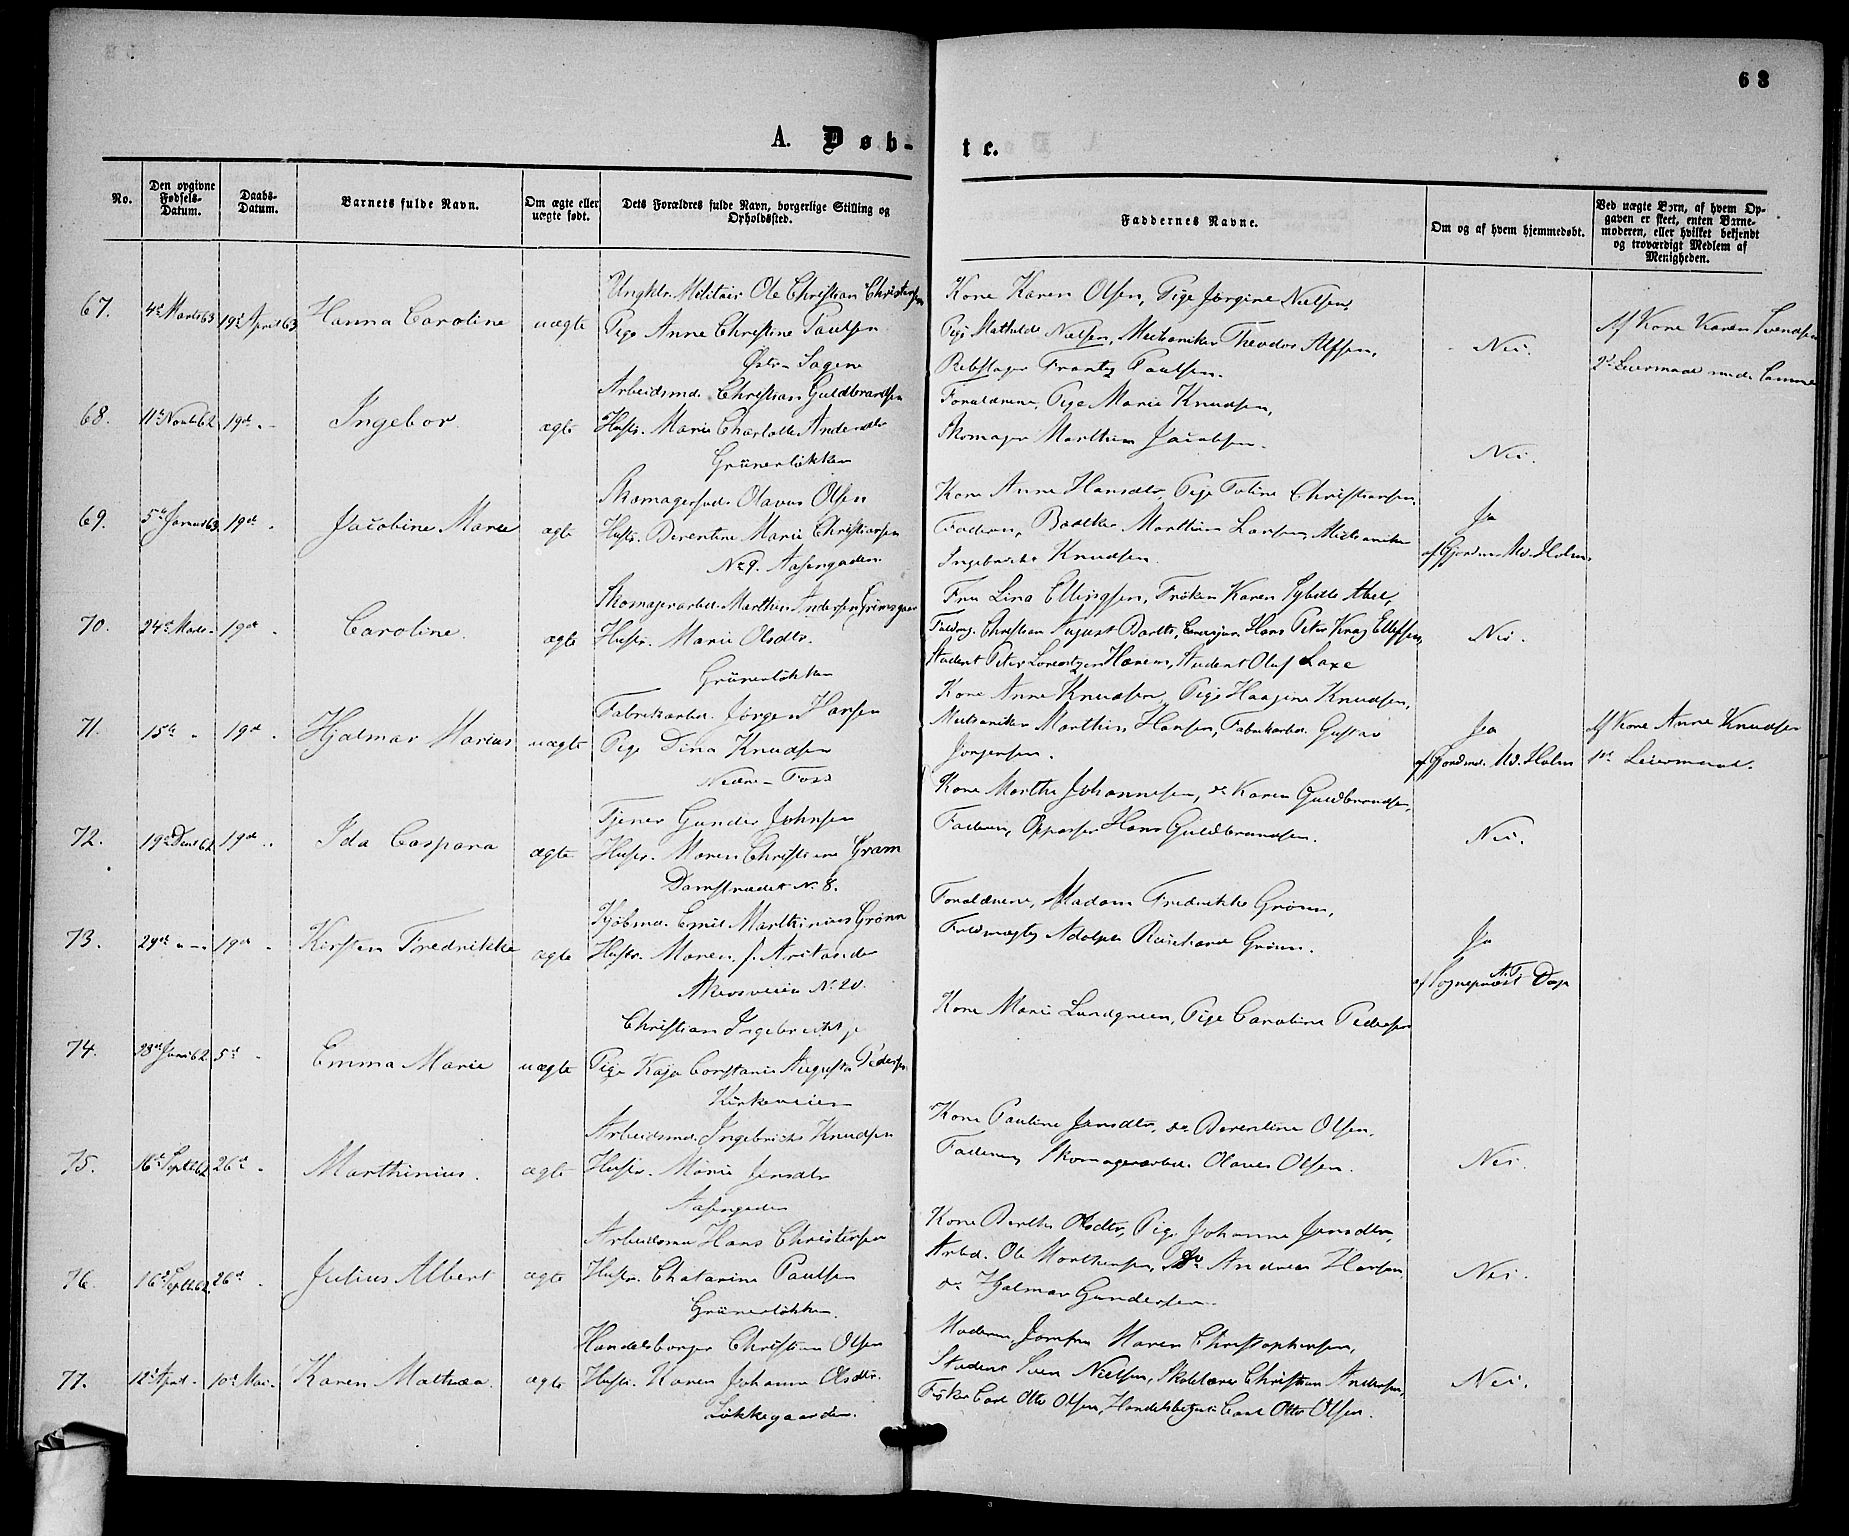 63
A. Døb-
te.
No.
Den opgivne Fødsels-Datum.
Daabs-Datum.
Barnets fulde Navn.
Om ægte eller uægte født.
Dets Forældres fulde Navn, borgerlige Stilling og Opholdssted.
Faddernes Navne.
Om og af hvem hjemmedøbt.
Ved uægte Børn, af hvem Opgaven er skeet, enten Barnemoderen, eller hvilket bekjendt og troværdigt Medlem af Menigheden.
67. 4de Marts 63 19de April 63 Hanna Caroline uægte
Ungkl. Militair Ole Christian Christensen
Pige Anne Christine Paulsen
Østre Sagene
Kone Karen Olsen, Pige Jørgine Nielsen,
Pige Mathilde Nielsen, Mekaniker Theodor Alfsen,
Rebslager Frantz Paulsen.
Nei.
Af Kone Karen Svendsen
2det Leiermaal med Samme
68. 11te Novb 62 19de " - Ingebor ægte
Arbeidsmd. Christian Guldbrandsen
Hustr. Marie Charlotte Andersdtr
Grünerløkken
Forældrene, Pige Marie Knudsen,
Skomager Marthin Jacobsen.
Nei.
69. 5te Januar 63 19de " Jacobine Marie ægte
Skomagersvd. Olavus Olsen
Hustr. Berentine Marie Christiansen
No 9. Aasengaden.
Kone Anne Hansdtr, Pige Christiansen,
Faderen, Marthin Larsen, Mekaniker
Ingebricht Knudsen.
Ja
af Gjordm. Md. Holm
70. 24de Marts - 19de " Caroline. ægte
Skomagerarbd. Marthin Andersen Grimsgaar
Hustr. Marie Olsdtr.
Grünerløkken
Fru Lina Ellingsen, Frøken Karen Sybille Abel,
Fuldm. Christian August Barth, Hans Peter Krag Ellefsen,
Student Peter Lorentzen Harem, Student Oluf Laxe
Nei.
71. 15de " 19de " Hjalmar Marius uægte
Fabrikarbd. Jørgen Hansen
Pige Dina Knudsen
Nedre - Foss
Kone Anne Knudsen, Pige Haagine Knudsen,
Mekaniker Marthin Hansen, Fabrikarbd. Gustav
Jørgensen.
Ja
af Gjordmd. Md. Holm
Af Kone Anne Knudsen
1ste Leiermaal.
72. 19de Decb 62 19de " Ida Caspara ægte
Tjener Gunder Johnsen
Hustr. Maren Christine Gram
Damstrædet No 8.
Kone Marthe Johannesen, do Karen Guldbrandsen,
Faderen, Opasser Hans Guldbrandsen.
Nei.
73. 29de " - 19de " Kirsten Fredrikke ægte
Kjøbmd. Emil Marthinius Grønn
Hustr. Maren f. Arstander
Akersveien No 20.
Forældrene, Madam Fredrikke Grønn,
Fuldmægtig Adolph Reichard Grønn.
Ja
af Sognepræst N. F. Dop
74. 28de Juni 62 5te " Emma Marie uægte
Christian Ingebrechtsen
Pige Kaja Constance Augusta Pedersen
Kirkeveien
Kone Marie Lundgreen, Pige Caroline Pedersen
75. 16de Septb 62 26de " Marthinius. ægte
Arbeidsmd. Ingebricht Knudsen
Hustr. Marie Jensdtr
Aasengaden
Kone Pauline Jensdtr, do Berentine Olsen,
Faderen, Skomagerarbd. Olaves Olsen.
Nei.
76. 16de Septb 62 26de " Julius Albert ægte
Arbeidsmd Hans Christensen
Hustr. Chatarine Paulsen
Grünerløkken.
Kone Berthe Olsdtr, Pige Johanne Jensdtr,
Arbd. Ole Marthinsen, do Andreas Hansen,
do Hjalmar Gundersen.
Nei.
77. 12te April - 10de Mai - Karen Mathea. ægte
Handelsborger Christian Olsen
Hustr. Karen Johanne Olsdtr.
Løkkegaarden.
Moderen, Jomfru Maren Christophersen,
Student Sven Nielsen, Skolelærer Christian Andersen,
Fisker Carl Otto Olsen, Handelsbetjent Carl Otto Olsen.
Nei.